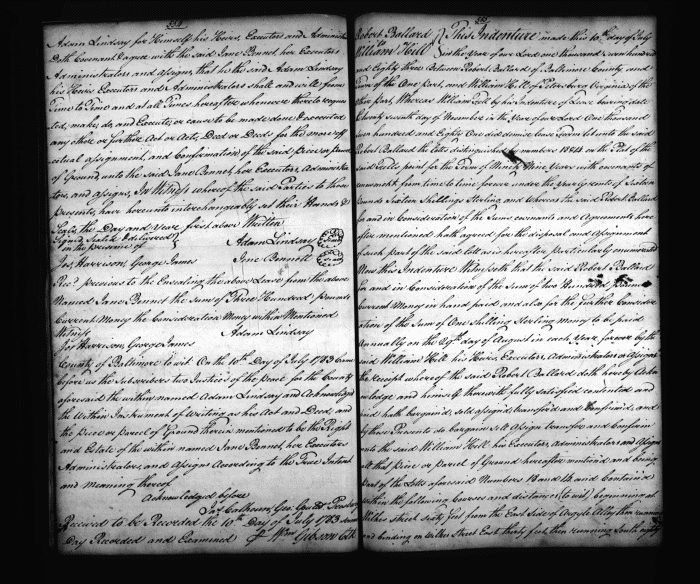 Adam Lindsay for Himself his Heirs, Executors and Administ
Doth Covenant & agree with the said Jane Bennet her Executors
Administrators and assigns, that he the said Adam Lindsay
his Heirs Executors and Administrators shall and will from
Time to Time and at all Times hereafter whenever thereto reques
ted, make, do, and Execute, or cause to be made done & executed
any other or further Act or Acts, Deed or Deeds for the more eff
ectual assignment, and Confirmation of the said Piece or parcel
of Ground unto the said Jane Bennet, her Executors, Administra
tors, and assigns, In Witness whereof the said Parties to these
Presents, have hereunto interchangeably set their Hands &
Seals the Day and Year first above Written
Signed Sealed & delivered
in the presence of Adam Lindsay
Jas Harrison, George James Jane Bennett
Rec.d previous to the Ensealing the above Lease from the above
Named Jane Bennet the Sum of Three Hundred Pounds
Current Money the Consideration Money within Mentioned
Witness Adam Lindsay
Jas Harrison, George James
County of Baltimore to wit. On the 10th Day of July 1783 Came
before us the Subscribers two Justices of the peace for the County
aforesaid the within named Adam Lindsay and Acknowledged
the Within Instrument of Writing as his Act and Deed, and
the piece or parcel of Ground therein mentioned to be the Right
and Estate of the within named Jane Bennet, her Executors
Administrators, and Assigns According to the True Intent
and Meaning thereof
Acknowledged before
Jas Calhoun, Geo: Gouldh Presbury
Received to be Recorded the 10th Day of July 1783 Same
Day Recorded and Examined Wm Gibson Clk
Robert Ballard This Indenture made this 10th day of July
William Hill in the Year of our Lord one thousand seven hundred
and Eighty Three Between Robert Ballard of Baltimore County and
Town of the One Part, and William Hill of Petersburg Virginia of the
other part, Whereas William Fell by his Indenture of Lease bearing date
Twenty Seventh day of November in the Year of our Lord One thousand
seven hundred and Eighty One did demise lease Farm let unto the said
Robert Ballard the Lotts distinguished by numbers 18 & 14 on the Plat of the
said Fells point for the Term of Ninety Nine Years with covenants of
renewment from time to time forever under the yearly rents of Sixteen
Pounds Sixteen Shillings Sterling and Whereas the said Robert Ballard
for and in Consideration of the Sums covenants and Agreements here
after mentioned hath agreed for the disposal and Assignment
of such part of the said lotts as is hereafter particularly enumerated
Now this Indenture Witnesseth that the said Robert Ballard
for and in Consideration of the Sum of two Hundred Pounds
Current Money in hand paid and also for the further Conside
ation of the Sum of One Shilling Sterling money to be paid
Annually on the 29th day of August in each Year forever by the
said William Hill his Heirs, Executors, Administrators or Assigns
the receipt whereof the said Robert Ballard doth hereby Ackn
owledge and himself therewith fully satisfied contented and
paid hath bargain'd, sold assigned transfer'd and Confirm'd, and
by these Presents do bargain sell Assign transfer and Confirm
unto the said William Hill his Executors, Administrators and Assigns
all that Piece or parcel of Ground hereafter mentioned and being
Part of the Lotts aforesaid Numbers 18 and 14 and Contained
within the following Courses and distances (to wit) beginning at
Wilkes Street Sixty feet from the East Side of Argyle Alley then running
and binding on Wilkes Street East thirty feet, then running South eighty